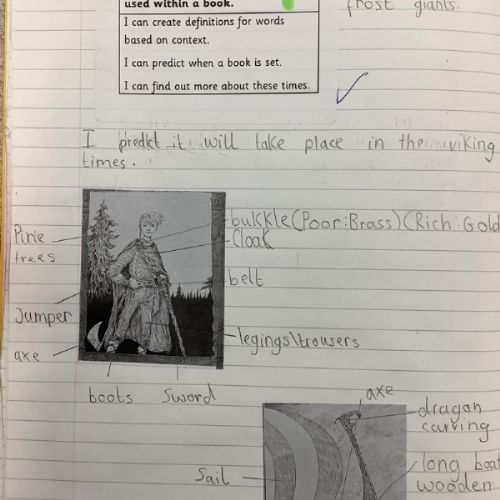 used within a book.
I can create definitions for words
based on context.
I can predict when a book is set.
I can find out more about these times.
frost giants.
I predict it will take place in the viking
times.
bukkle(Poor:Brass)(Rich:Gold
Cloak
Pine
trees
belt
Jumper
legings\trousers
axe
boots
Sword
axe
dragon
carving
long boat
wooden
Sail